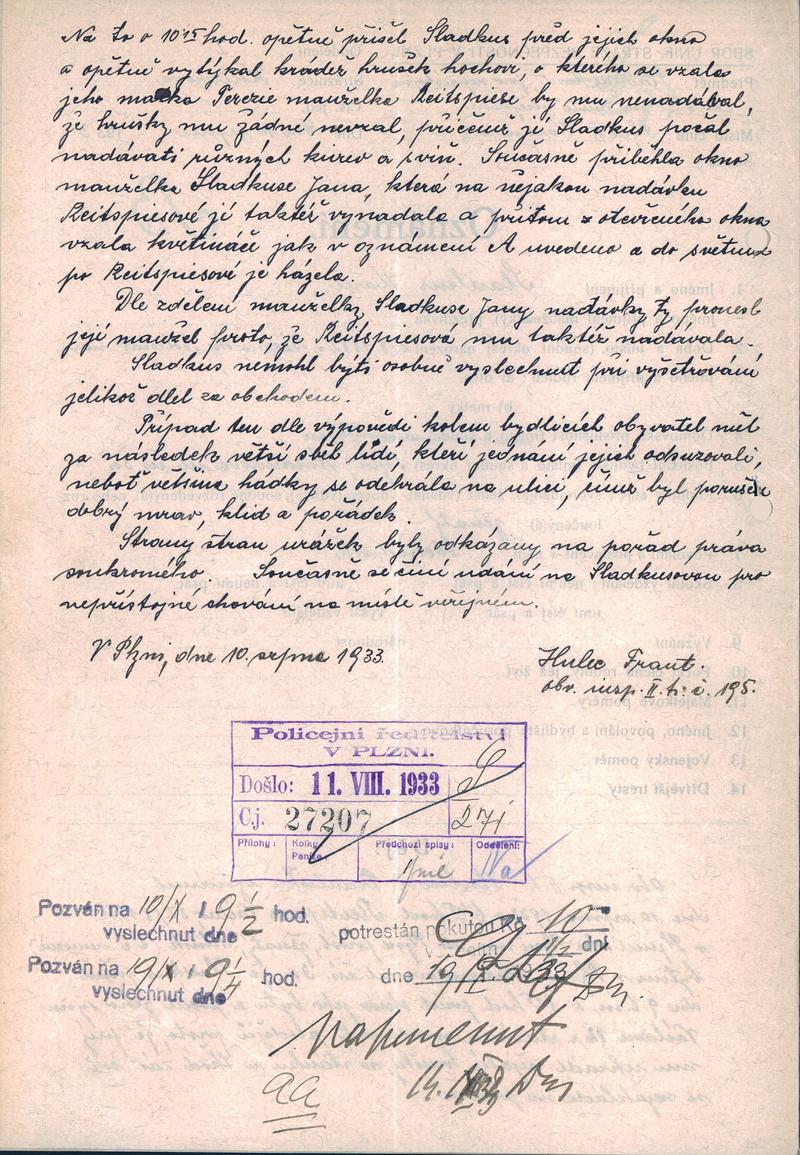 Na to o 10 15 hod. opětně přišel Sladkus před jejich okno
a opětně vytýkal krádež hrušek hochovi, o kterého se vzala
jeho matka Terezie manželka Reitspiese by mu nenadával,
že hrušky mu žádné nevzal, při čemž jí Sladkus počal
nadávati různých kurev a sviň. Současně přiběhla okno
manželka Sladkuse Jana, která na nějakou nadávku
Reitspiesové jí taktéž vynadala a přitom z otevřeného okna
vzala květináče jak v oznámení A uvedeno a do světnice
po Reitspiesové je házela.
Dle zdělení manželky Sladkuse Jany nadávky ty pronesl
její manžel proto, že Reitspiesová mu taktéž nadávala.
Sladkus nemohl býti osobně vyslechnut při vyšetřování
jelikož dlel za obchodem.
Případ ten dle výpovědi kolem bydlících obyvatel měl
za následek větší sběh lidí, kteří jednání jejich odsuzovali,
neboť většina hádky se odehrála na ulici, čímž byl porušen
dobrý mrav, klid a pořádek.
Strany stran urážek byly odkázány na pořad práva
soukromého. Současně se činí udání na Sladkusovou pro
nepřístojné chování na místě veřejném.
V Plzni, dne 10. srpna 1933.
Hulec Frant.
obv. insp. II. tř. č. 195.
Policejní ředitelství
V PLZNI.
Došlo: 11. VIII. 1933 S
Č.j. 27207 271
Přílohy: Kolky: Peníze: Předchozí spisy: Oddělení:
Na
Pozván na 10/X 1 9 1/2 hod.
vyslechnut dne
potrestán pokutou Kč 10
dní
Pozván na 19/X 1 9 1/4 hod.
vyslechnut dne
dne 19/X 1933
napomenut
aa